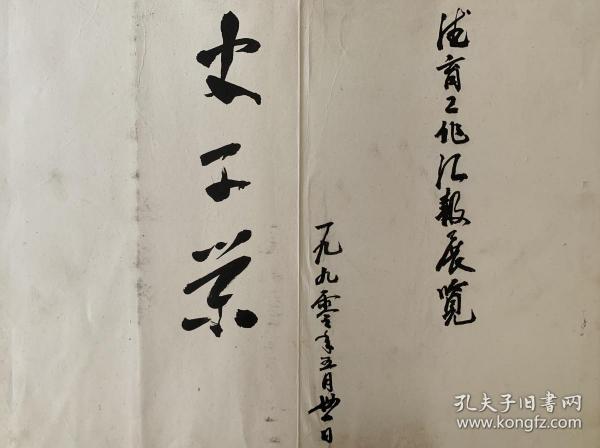 德育工作汇报展览
一九九零年五月卅一日
史子荣
孔夫子旧书网
www.kongfz.com